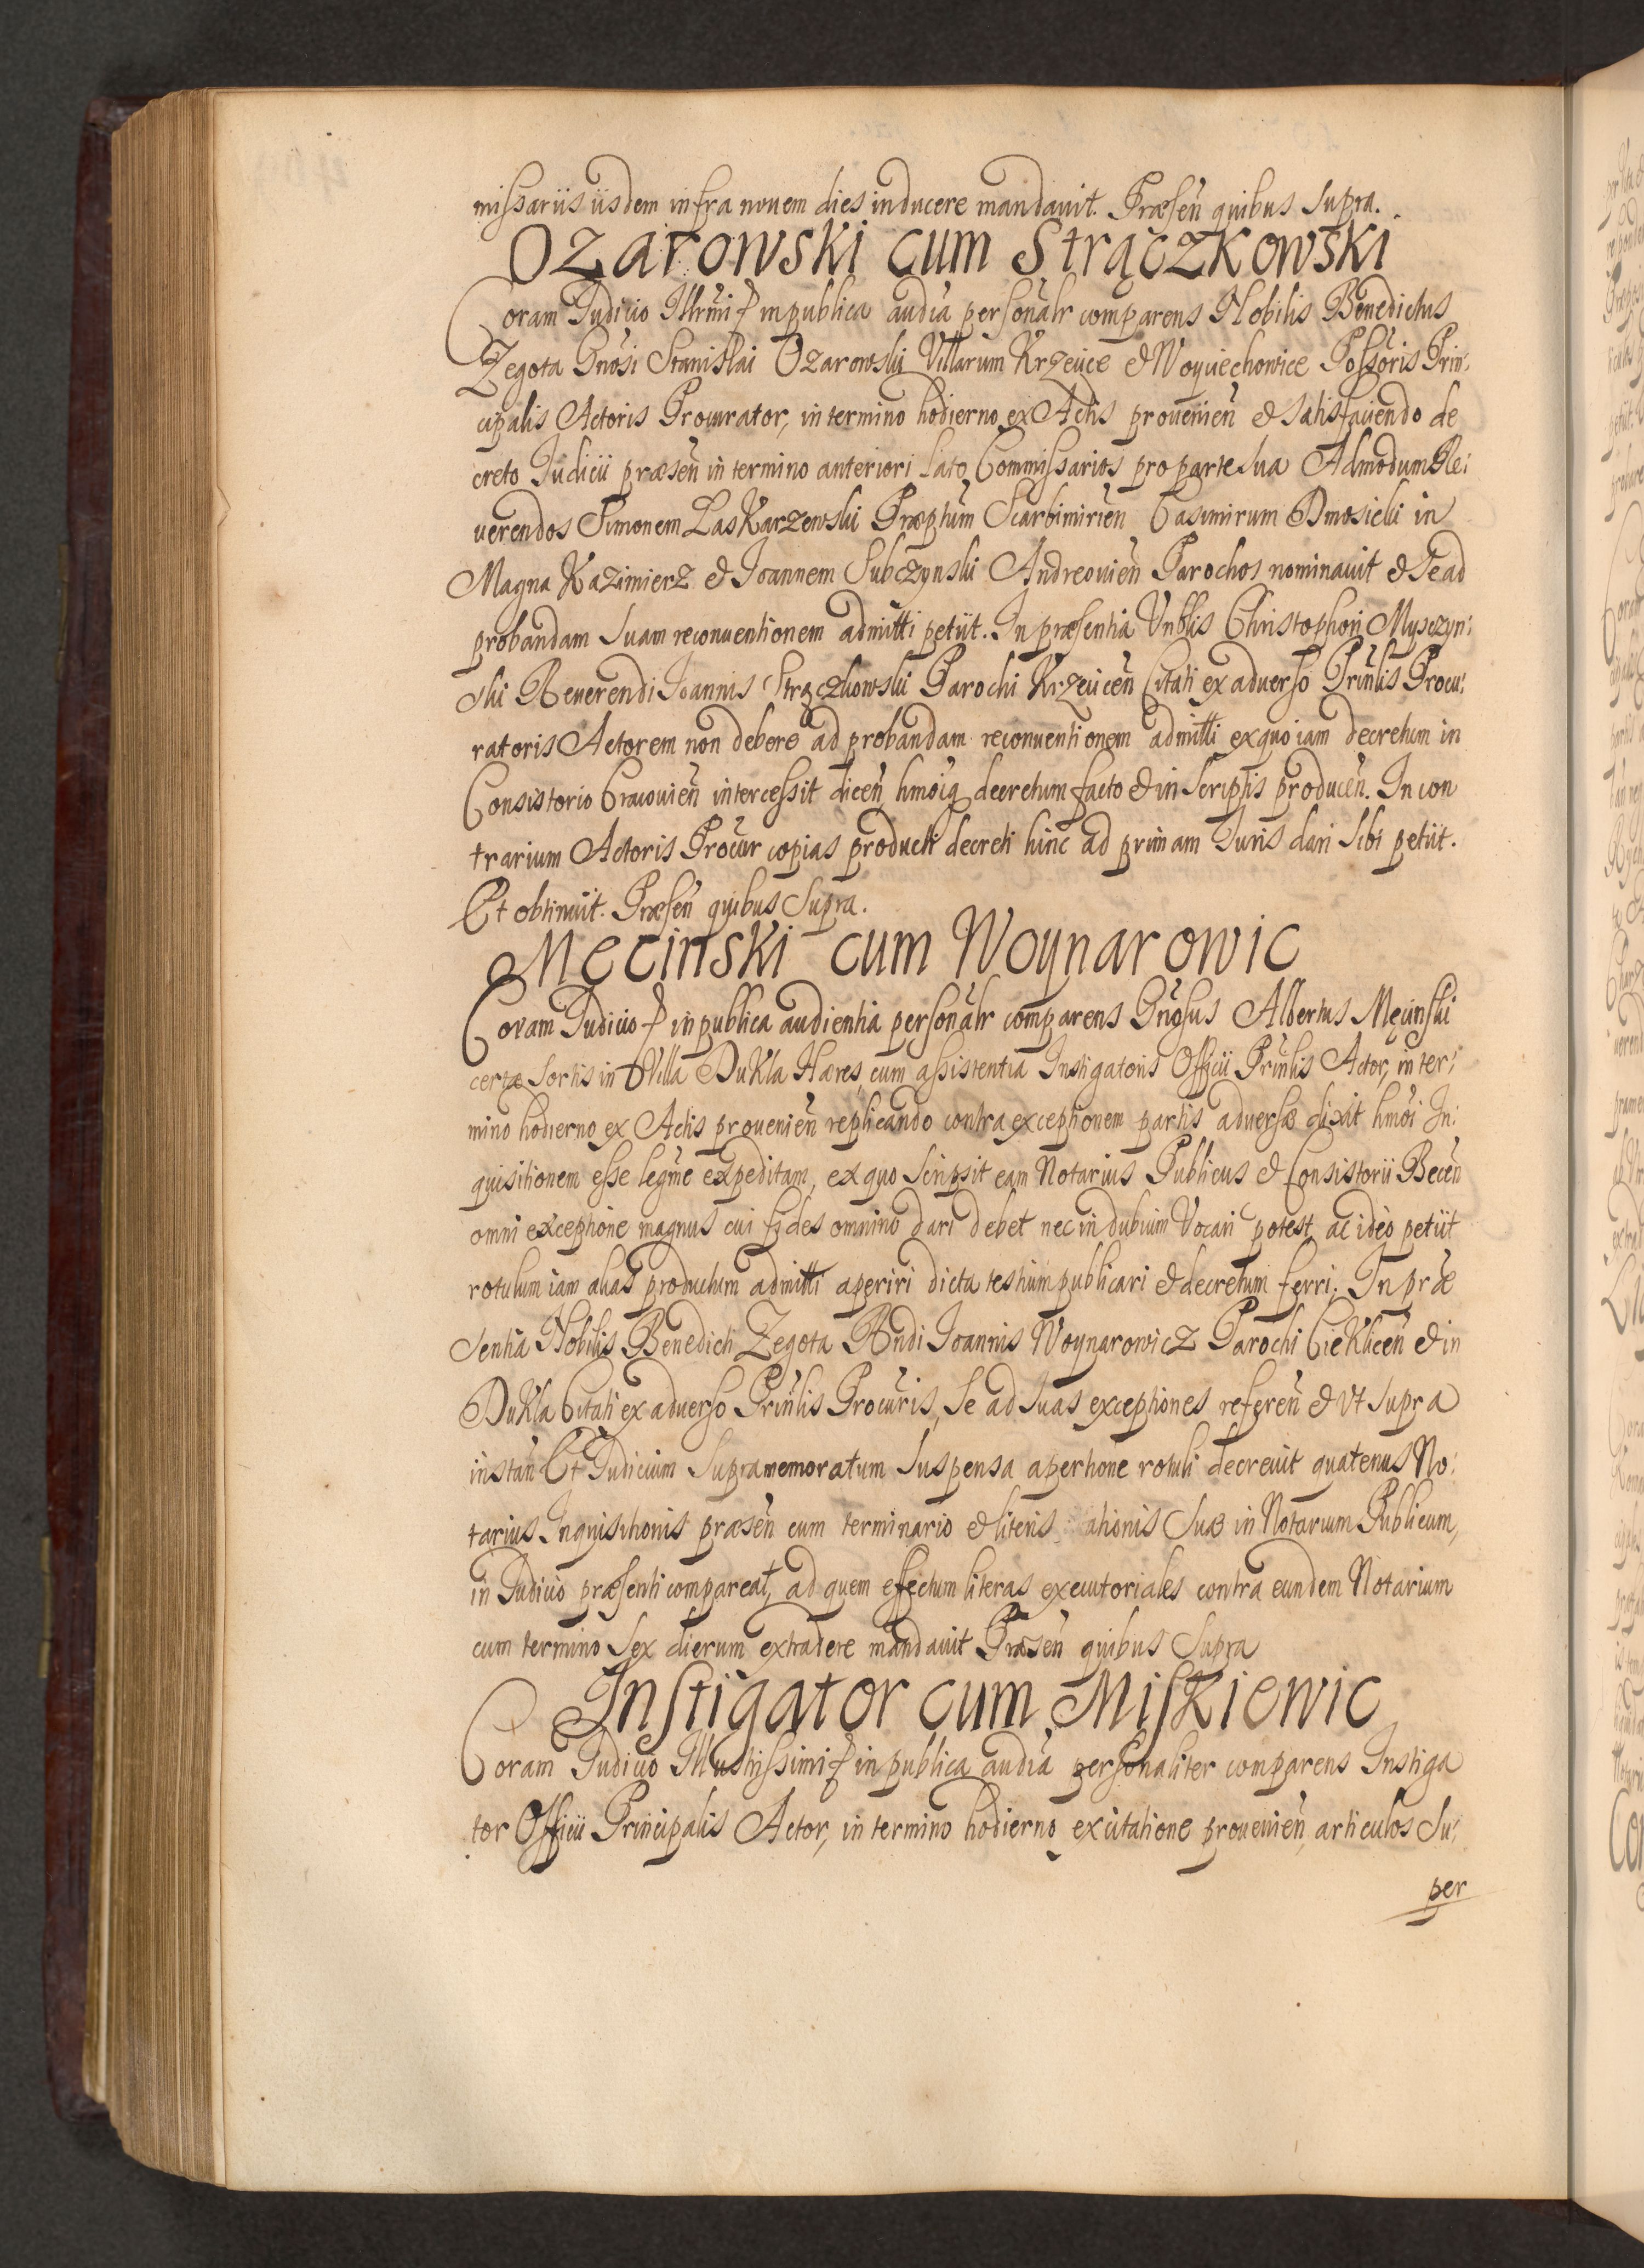 missariis iisdem infra nouem dies inducere mandauit. Præsen̄ quibus supra.
Ozarowski cum Strączkowski
Coram Judicio Illrmi p in publica audia personalr comparens Nobilis Benedictus
Zegota Gnosi Stanislai Ozarowski Villarum Krzeiice & Woyciechowice Possoris Prin:
cipalis Actoris Procurator, in termino hodierno ex Actis prouenien̄ & satisfaciendo de
creto Judicii præsen̄ in termino anteriori lato Commissarios pro parte sua Admodum Re:
uerendos Simonem Laskarzewski Præptum Scarbimirien̄ Casimirum Dmosicki in
Magna Kazimierz & Joannem Subczynski Andreouien̄ Parochos nominauit & se ad
probandam suam reconuentionem admitti petiit. In præsentia Vnblis Christophori Mysczyn:
ski Reuerendi Joannis Strączkowski Parochi Krzeiicen̄ Citati ex aduerso Prinlis Procu:
ratoris Actorem non debere ad probandam reconuentionem admitti ex quo iam decretum in
Consistorio Cracouien̄ intercessit dicen̄ hmoiq decretum facto & in scriptis producen̄. In con
trarium Actoris Procur copias producti decreti hinc ad primam Juris dari sibi petiit.
Et obtinuit. Præsen̄ quibus supra.
Męcinski cum Woynarowic
Coram Judicio p in publica audientia personalr comparens Gnosus Albertus Męcinski
certæ sortis in Villa Dukla Hæres, cum assistentia Instigatoris Officii Prinlis Actor, in ter:
mino hodierno ex Actis prouenien̄ replicando contra exceptionem partis aduersæ dixit hmoi In:
quisitionem esse legme expeditam, ex quo scripsit eam Notarius Publicus & Consistorii Becen̄
omni exceptione magnus cui fides omnino dari debet nec in dubium Vocari potest, ac ideo petiit
rotulum iam alias productum admitti aperiri dicta testium publicari & decretum ferri. In præ
sentia Nobilis Benedicti Zegota Rndi Joannis Woynarowicz Parochi Cieklicen̄ & in
Dukla Citati ex aduerso Prinlis Procuris, se ad suas exceptiones referen̄ & Vt supra
instan̄ Et Judicium supramemoratum suspensa apertione rotuli decreuit quatenus No:
tarius Inquisitionis præsen̄ cum terminario & literis ationis suæ in Notarium Publicum,
in Judicio præsenti compareat, ad quem effectum literas executoriales contra eundem Notarium
cum termino sex dierum extradere mandauit Præsen̄ quibus supra
Instigator cum Miskiewic
Coram Judicio Illustrissimi p in publica audia personaliter comparens Instiga
tor Officii Principalis Actor, in termino hodierno ex citatione prouenien̄ articulos su:
per